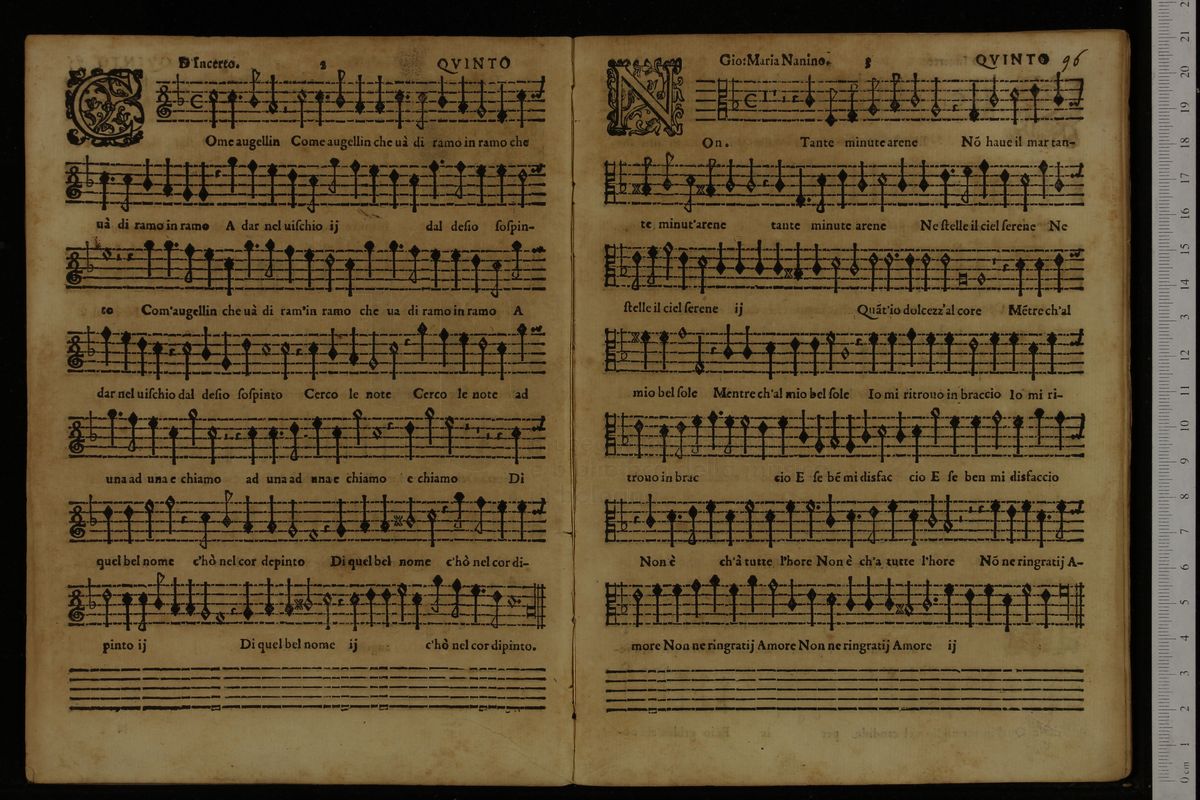 D'Incerto. 2 QVINTO
C
Ome augellin Come augellin che uà di ramo in ramo che
uà di ramo in ramo A dar nel uischio ij dal desio sospin-
to Com'augellin che uà di ram'in ramo che ua di ramo in ramo A
dar nel uischio dal desio sospinto Cerco le note Cerco le note ad
una ad una e chiamo ad una ad una e chiamo e chiamo Di
quel bel nome c'hò nel cor depinto Di quel bel nome c'hò nel cor di-
pinto ij Di quel bel nome ij c'hò nel cor dipinto.
Gio: Maria Nanino. 3 QVINTO 96
N
On. Tante minute arene Nõ haue il mar tan-
te minut'arene tante minute arene Ne stelle il ciel serene Ne
stelle il ciel serene ij Quãt'io dolcezz'al core Mẽtre ch'al
mio bel sole Mentre ch'al mio bel sole Io mi ritrouo in braccio Io mi ri-
trouo in brac cio E se bẽ mi disfac cio E se ben mi disfaccio
Non è ch'à tutte l'hore Non è ch'a tutte l'hore Nõ ne ringratij A-
more Non ne ringratij Amore Non ne ringratij Amore ij